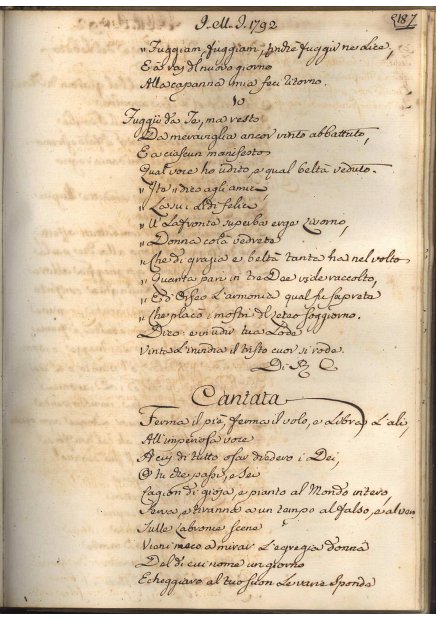 I. M. I. 1792
187
" Fuggiam fuggiam, ond'è fuggir ne lice,
E a rai del nuovo giorno
Alla capanna mia feci ritorno.
10
Fuggii da Te, ma resto
Da meraviglia ancor vinto abbattuto,
E a ciascun manifesto
Qual voce ho udito, e qual beltà veduto.
" Ite " dico agli amici,
" Là sui felici
" U' la fronte superba erge Livorno,
" Donna colà vedrete
" Che di grazia e beltà tanta ha nel volto
" Quanta pari in tre Dee vide raccolto,
" Ed Orfeo L'armonia qual fu saprete
" Che placò i mostri del tetro soggiorno.
Dico: e in udir tua Lode
Vinta L'invidia il tristo cuor si rode.
Di
Cantata
Ferma il piè, ferma il volo, e Libra L'ali,
All'imperiosa voce
A cui di tutto osar diedero i Dei,
O tu che passi, e sei
Cagion di gioja, e pianto al Mondo intero,
Serva, e tiranna a un tempo al falso, e al vero
Sulle Labronie scene
Vieni meco a mirar L'egregia donna
Del di cui nome un giorno
Echeggiaro al tuo suon Le varie sponde